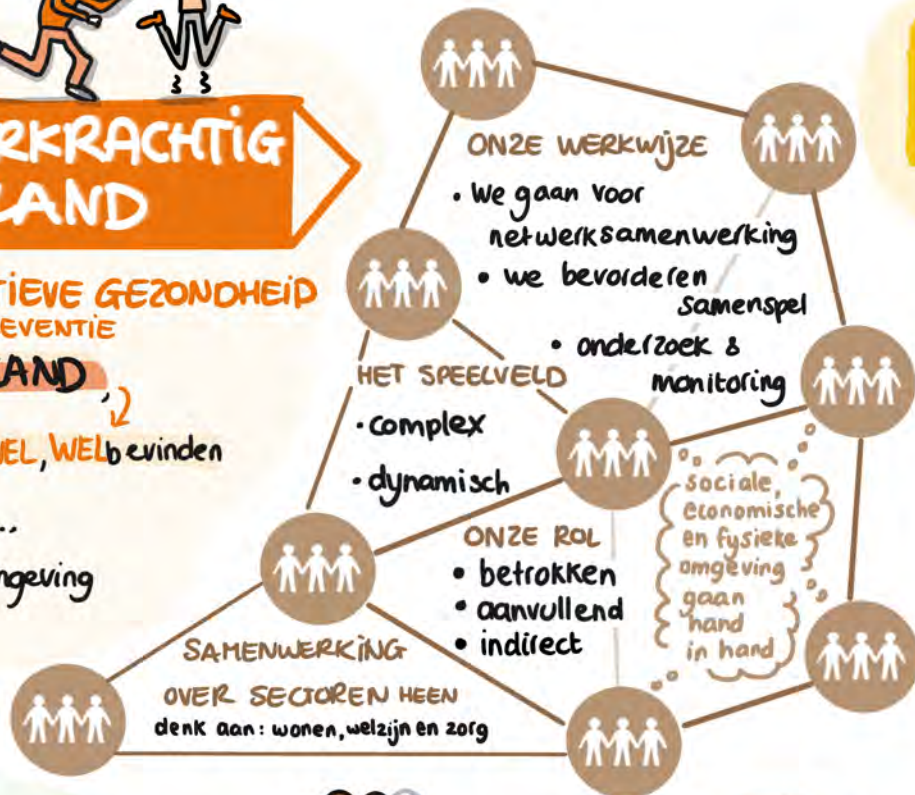 RKRACHTIG
LAND
TIEVE GEZONDHEID
EVENTIE
AND
EL, WELbevinden
..
ngeving
ONZE WERKWIJZE
• We gaan voor
netwerksamenwerking
• we bevorderen
samenspel
• onderzoek &
monitoring
HET SPEELVELD
• complex
• dynamisch
ONZE ROL
• betrokken
• aanvullend
• indirect
sociale,
economische
en fysieke
omgeving
gaan
hand
in hand
SAMENWERKING
OVER SECTOREN HEEN
denk aan: wonen, welzijn en zorg